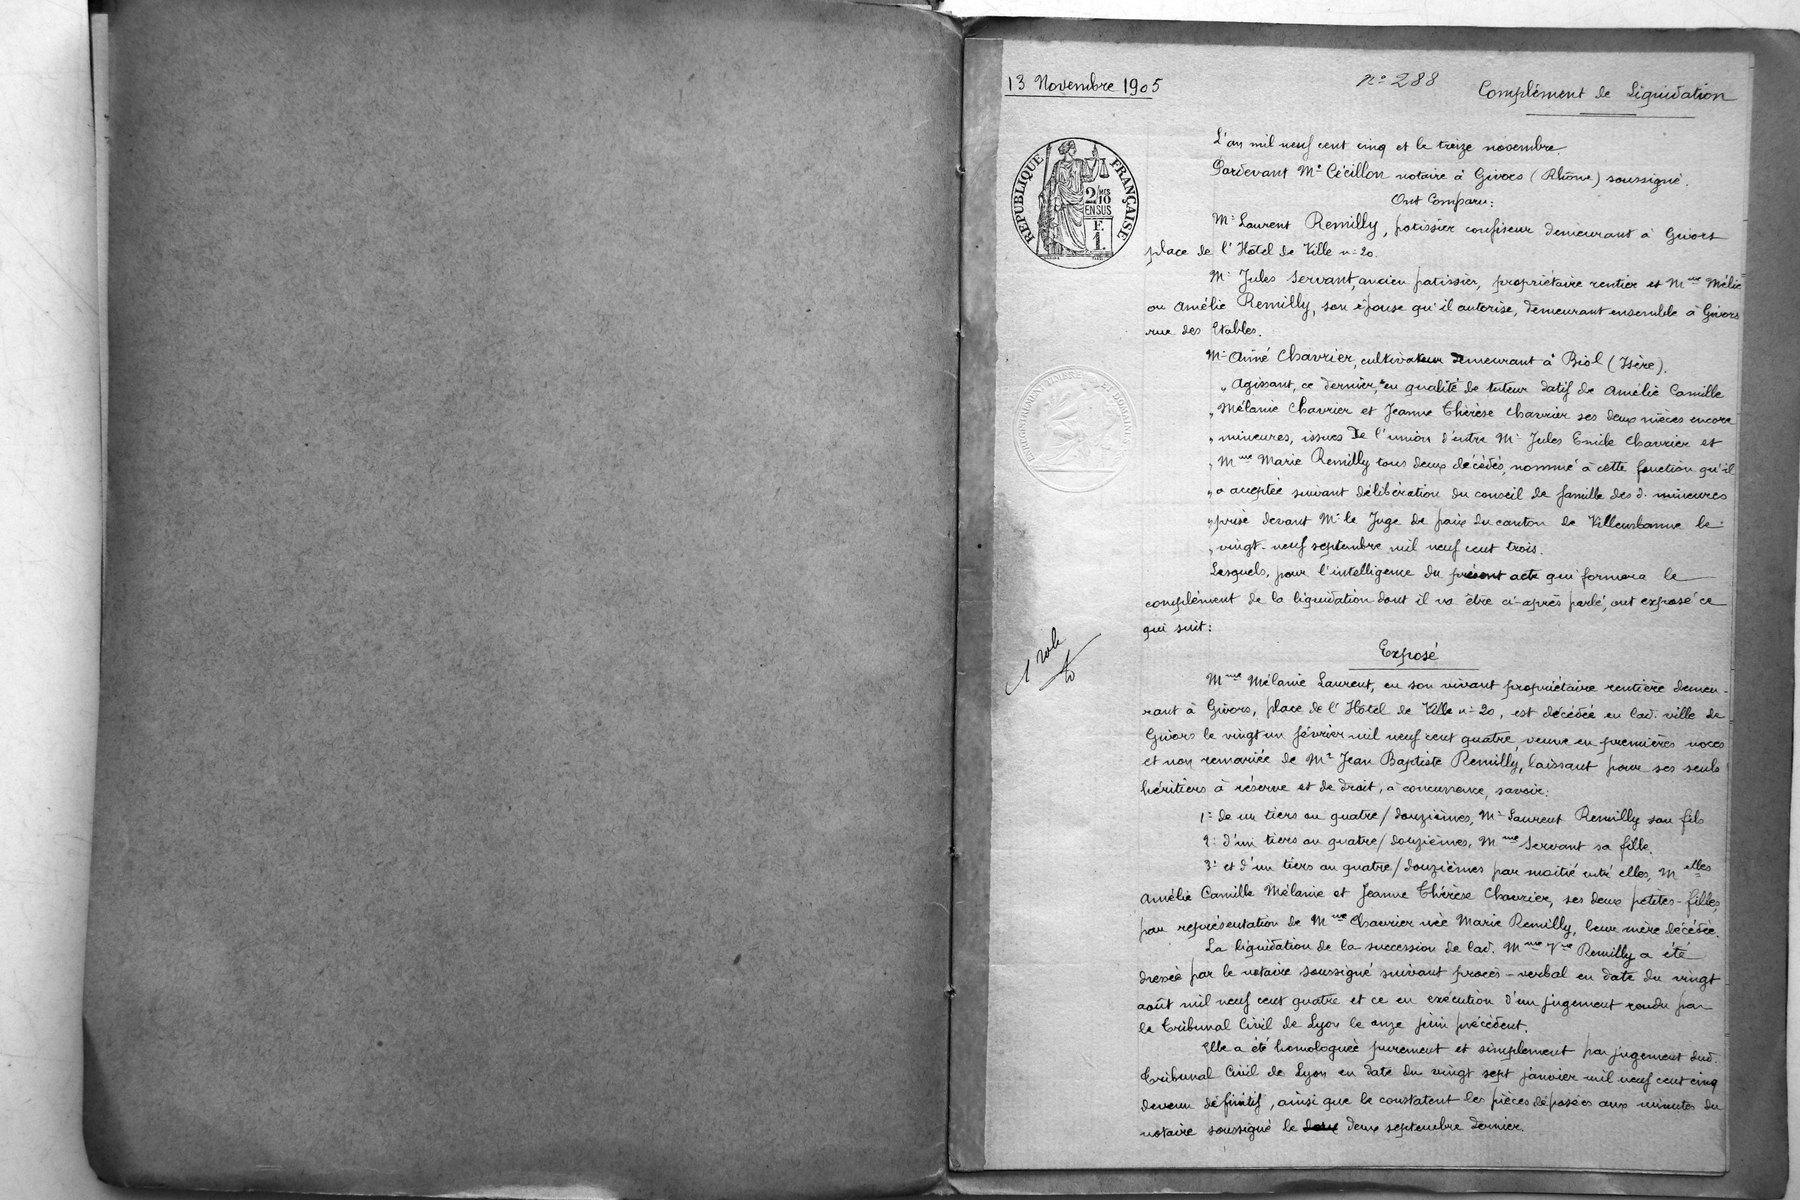 13 Novembre 1905
n° 288
Complément de Liquidation
RÉPUBLIQUE FRANÇAISE
2/10 MES
EN SUS
F.
1.
L'an mil neuf cent cinq et le treize novembre.
Pardevant Me Cécillon notaire à Givors (Rhône) soussigné.
Ont Comparu:
Mr Laurent Remilly, patissier confiseur demeurant à Givors
place de l'Hôtel de Ville n° 20.
Mr Jules Servant, ancien patissier, propriétaire rentier et Mme Mélie
ou Amélie Remilly, son épouse qu'il autorise, demeurant ensemble à Givors
rue des Etables.
Mr Aimé Chavrier, cultivateur demeurant à Biol (Isère).
„ Agissant, ce dernier, en qualité de tuteur datif de Amélie Camille
„ Mélanie Chavrier et Jeanne Thérèse Chavrier ses deux nièces encore
„ mineures, issues de l'union d'entre Mr Jules Emile Chavrier et
„ Mme Marie Remilly tous deux décédés, nommé à cette fonction qu'il
„ a acceptée suivant délibération du conseil de famille des d. mineures
„ prise devant Mr le Juge de paix du canton de Villeurbanne le
„ vingt-neuf septembre mil neuf cent trois.
Lesquels, pour l'intelligence du présent acte qui formera le
complément de la liquidation dont il va être ci-après parlé, ont exposé ce
qui suit:
1 role
Exposé
Mme Mélanie Laurent, en son vivant propriétaire rentière demeu-
rant à Givors, place de l'Hôtel de Ville n° 20, est décédée en lad. ville de
Givors le vingt un février mil neuf cent quatre, veuve en premières noces
et non remariée de Mr Jean Baptiste Remilly, laissant pour ses seuls
héritiers à réserve et de droit, à concurrence, savoir:
1° de un tiers ou quatre/douzièmes, Mr Laurent Remilly son fils
2° d'un tiers ou quatre/douzièmes, Mme Servant sa fille.
3° et d'un tiers ou quatre/douzièmes par moitié entr'elles, Melles
Amélie Camille Mélanie et Jeanne Thérèse Chavrier, ses deux petites-filles,
par représentation de Mme Chavrier née Marie Remilly, leur mère décédée.
La liquidation de la succession de lad. Mme Vve Remilly a été
dressée par le notaire soussigné suivant procès-verbal en date du vingt
août mil neuf cent quatre et ce en exécution d'un jugement rendu par
le Tribunal Civil de Lyon le onze juin précédent.
Elle a été homologuée purement et simplement par jugement dud.
Tribunal Civil de Lyon en date du vingt sept janvier mil neuf cent cinq
devenu définitif, ainsi que le constatent les pièces déposées aux minutes du
notaire soussigné le deux septembre dernier.